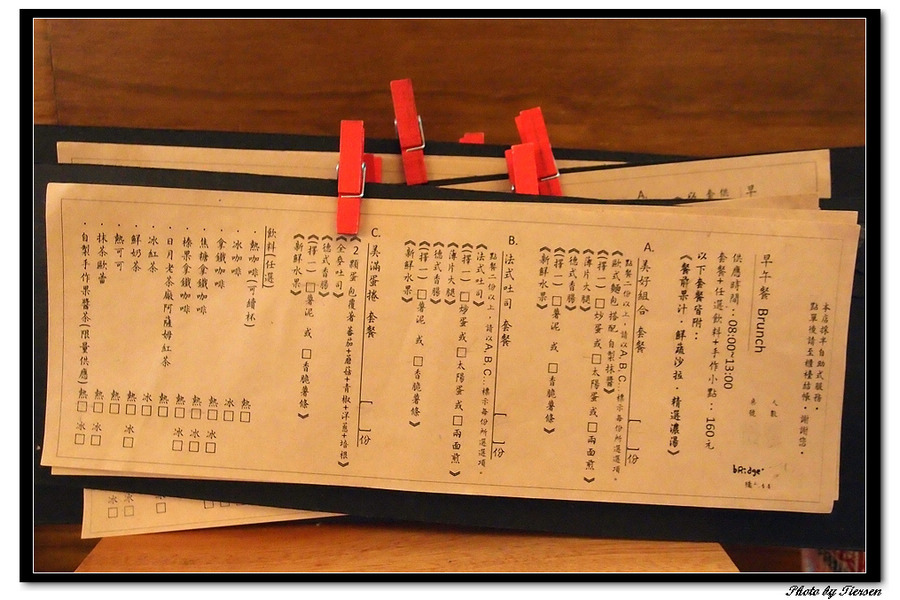 本店採半自助式服務。
點單後請至櫃檯結帳。謝謝您。
早午餐 Brunch
人數
桌號
供應時間：08:00~13:00
套餐+任選飲料+手作小點：160元
以下套餐皆附：
《餐前果汁．鮮蔬沙拉．精選濃湯》
bRidge
A. 美好組合 套餐 份
點餐二份以上，請以A,B,C...標示每份所選選項。
《歐式麵包搭配自製抹醬》
《擇一》□炒蛋或□太陽蛋或□兩面煎》
《薄片火腿》
《德式香腸》
《擇一》□薯泥 或 □香脆薯條》
《新鮮水果》
B. 法式吐司 套餐 份
點餐二份以上，請以A,B,C...標示每份所選選項。
《法式吐司》
《擇一》□炒蛋或□太陽蛋或□兩面煎》
《薄片火腿》
《德式香腸》
《擇一》□薯泥 或 □香脆薯條》
《新鮮水果》
C. 美滿蛋捲 套餐 份
《2顆蛋包覆著蕃茄+蘑菇+青椒+洋蔥+培根》
《全麥吐司》
《德式香腸》
《擇一》□薯泥 或 □香脆薯條》
《新鮮水果》
飲料(任選)
．熱咖啡(可續杯) 熱□
．冰咖啡 冰□
．拿鐵咖啡 熱□ 冰□
．焦糖拿鐵咖啡 熱□ 冰□
．榛果拿鐵咖啡 熱□ 冰□
．日月老茶廠阿薩姆紅茶 熱□
．冰紅茶 冰□
．鮮奶茶 熱□ 冰□
．熱可可 熱□
．抹茶歐蕾 熱□ 冰□
．自製手作果醬茶(限量供應) 熱□ 冰□
Photo by Tiersen